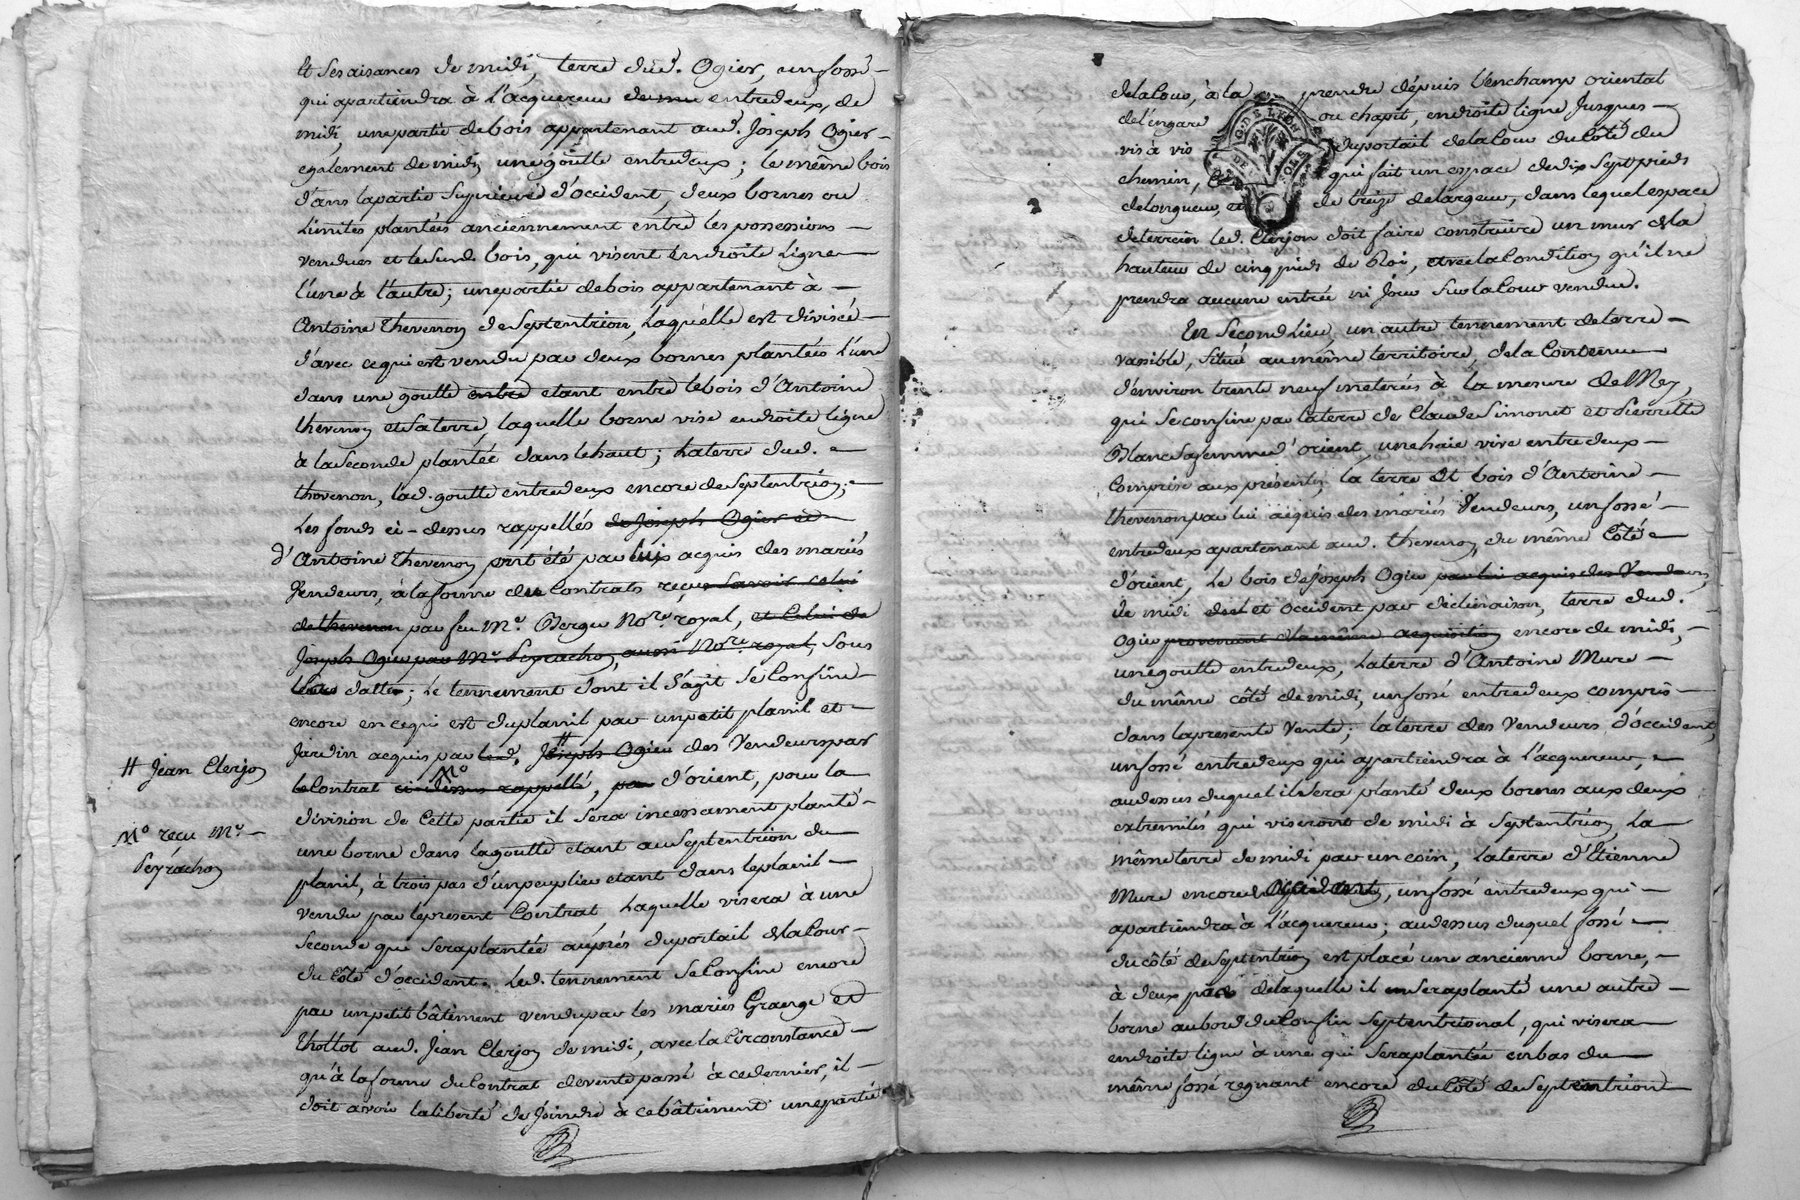 et ses aisances de midi, terre dud. Ogier, un fossé
qui apartiendra à l'acquereur de mu entredeux, de
midi, une partie de bois appartenant aud. Joseph Ogier
egalement de midi, une goutte entredeux ; le même bois
dans la partie superieure d'occident, deux bornes ou
Limites plantées anciennement entre les possessions
vendues et le susd. bois, qui visent en droite Ligne
l'une à l'autre ; une partie de bois appartenant à
Antoine Thevenon de Septentrion, Laquelle est divisée
d'avec ce qui est vendu par deux bornes plantées L'une
dans une goutte entre etant entre le bois d'Antoine
thevenon et sa terre, laquelle borne vise en droite ligne
à la seconde plantée dans le haut ; La terre dud.
thevenon, lad. goutte entredeux encore de Septentrion ;
Les fonds ci-dessus rappellés de Joseph Ogier et
d'Antoine Thevenon ont été par lui acquis des mariés
Vendeurs, à la forme du Contrats reçu savoir celui
de thevenon par feu Me. Berger Nore. royal, et celui de
Joseph Ogier par Me. Peyrachon, aussi Nore. royal, sous
leurs datte ; Le tennement dont il s'agit se Confine
encore en ce qui est du planil par un petit planil et
Jardin acquis par led. # Joseph Ogier des Vendeurs par
le Contrat No ci-dessus rappellé, par d'orient, pour la
division de cette partie il sera incessament planté
une borne dans la goutte etant au Septentrion du
planil, à trois pas d'un peuplier etant dans le planil
vendu par le present Contrat, Laquelle visera à une
seconde qui sera plantée auprés du portail de la Cour
du côté d'occident. Led. tennement se Confine encore
par un petit bâtiment vendu par les mariés Grange et
Thollot aud. Jean Clerjon de midi, avec la Circonstance
qu'à la forme du Contrat de vente passé à ce dernier, il
doit avoir la liberté de Joindre à ce bâtiment une partie
# Jean Clerjon
No reçu Me.
Peyrachon
de la Cour, à la prendre depuis l'enchamp oriental
de l'engare ou chapit, en droite ligne Jusques
vis à vis du portail de la Cour du Côté du
chemin, qui fait un espace de dix sept pieds
de longueur, et de treize de largeur, dans lequel espace
de terrein led. Clerjon doit faire construire un mur de la
hauteur de cinq pieds de Roi, avec la Condition qu'il ne
prendra aucune entrée ni Jour sur la Cour vendue.
G.D.E LYON
DE SOLS
En Second Lieu, un autre tennement de terre
vassible, situé au même territoire, de la Contenue
d'environ trente neuf meterées à la mesure de Mey,
qui se confine par la terre de Claude Simonet et Pierrette
Blanc sa femme d'orient, une haie vive entredeux
Comprise aux présentes, la terre et bois d'Antoine
thevenon par lui acquis des mariés Vendeurs, un fossé
entredeux apartenant aud. thevenon, du même Côté
d'orient, Le bois de Joseph Ogier par lui acquis des Vendeurs,
de midi et occident par declinaison, terre dud.
Ogier provenant de la même acquisition encore de midi,
une goutte entredeux, La terre d'Antoine Mure
du même côté de midi, un fossé entredeux compris
dans la presente Vente ; la terre des Vendeurs d'occident,
un fossé entredeux qui appartiendra à l'acquereur,
audessus duquel il sera planté deux bornes aux deux
extremités qui viseront de midi à Septentrion, La
même terre de midi par un coin, La terre d'Etienne
Mure encore d'occident, un fossé entredeux qui
apartiendra à l'acquereur ; audessus duquel fossé
du côté de Septentrion est placé une ancienne borne,
à deux pas de laquelle il en sera planté une autre
borne au bord du Confin Septentrional, qui visera
en droite ligne à une qui sera plantée en bas du
même fossé regnant encore du Côté de Septentrion